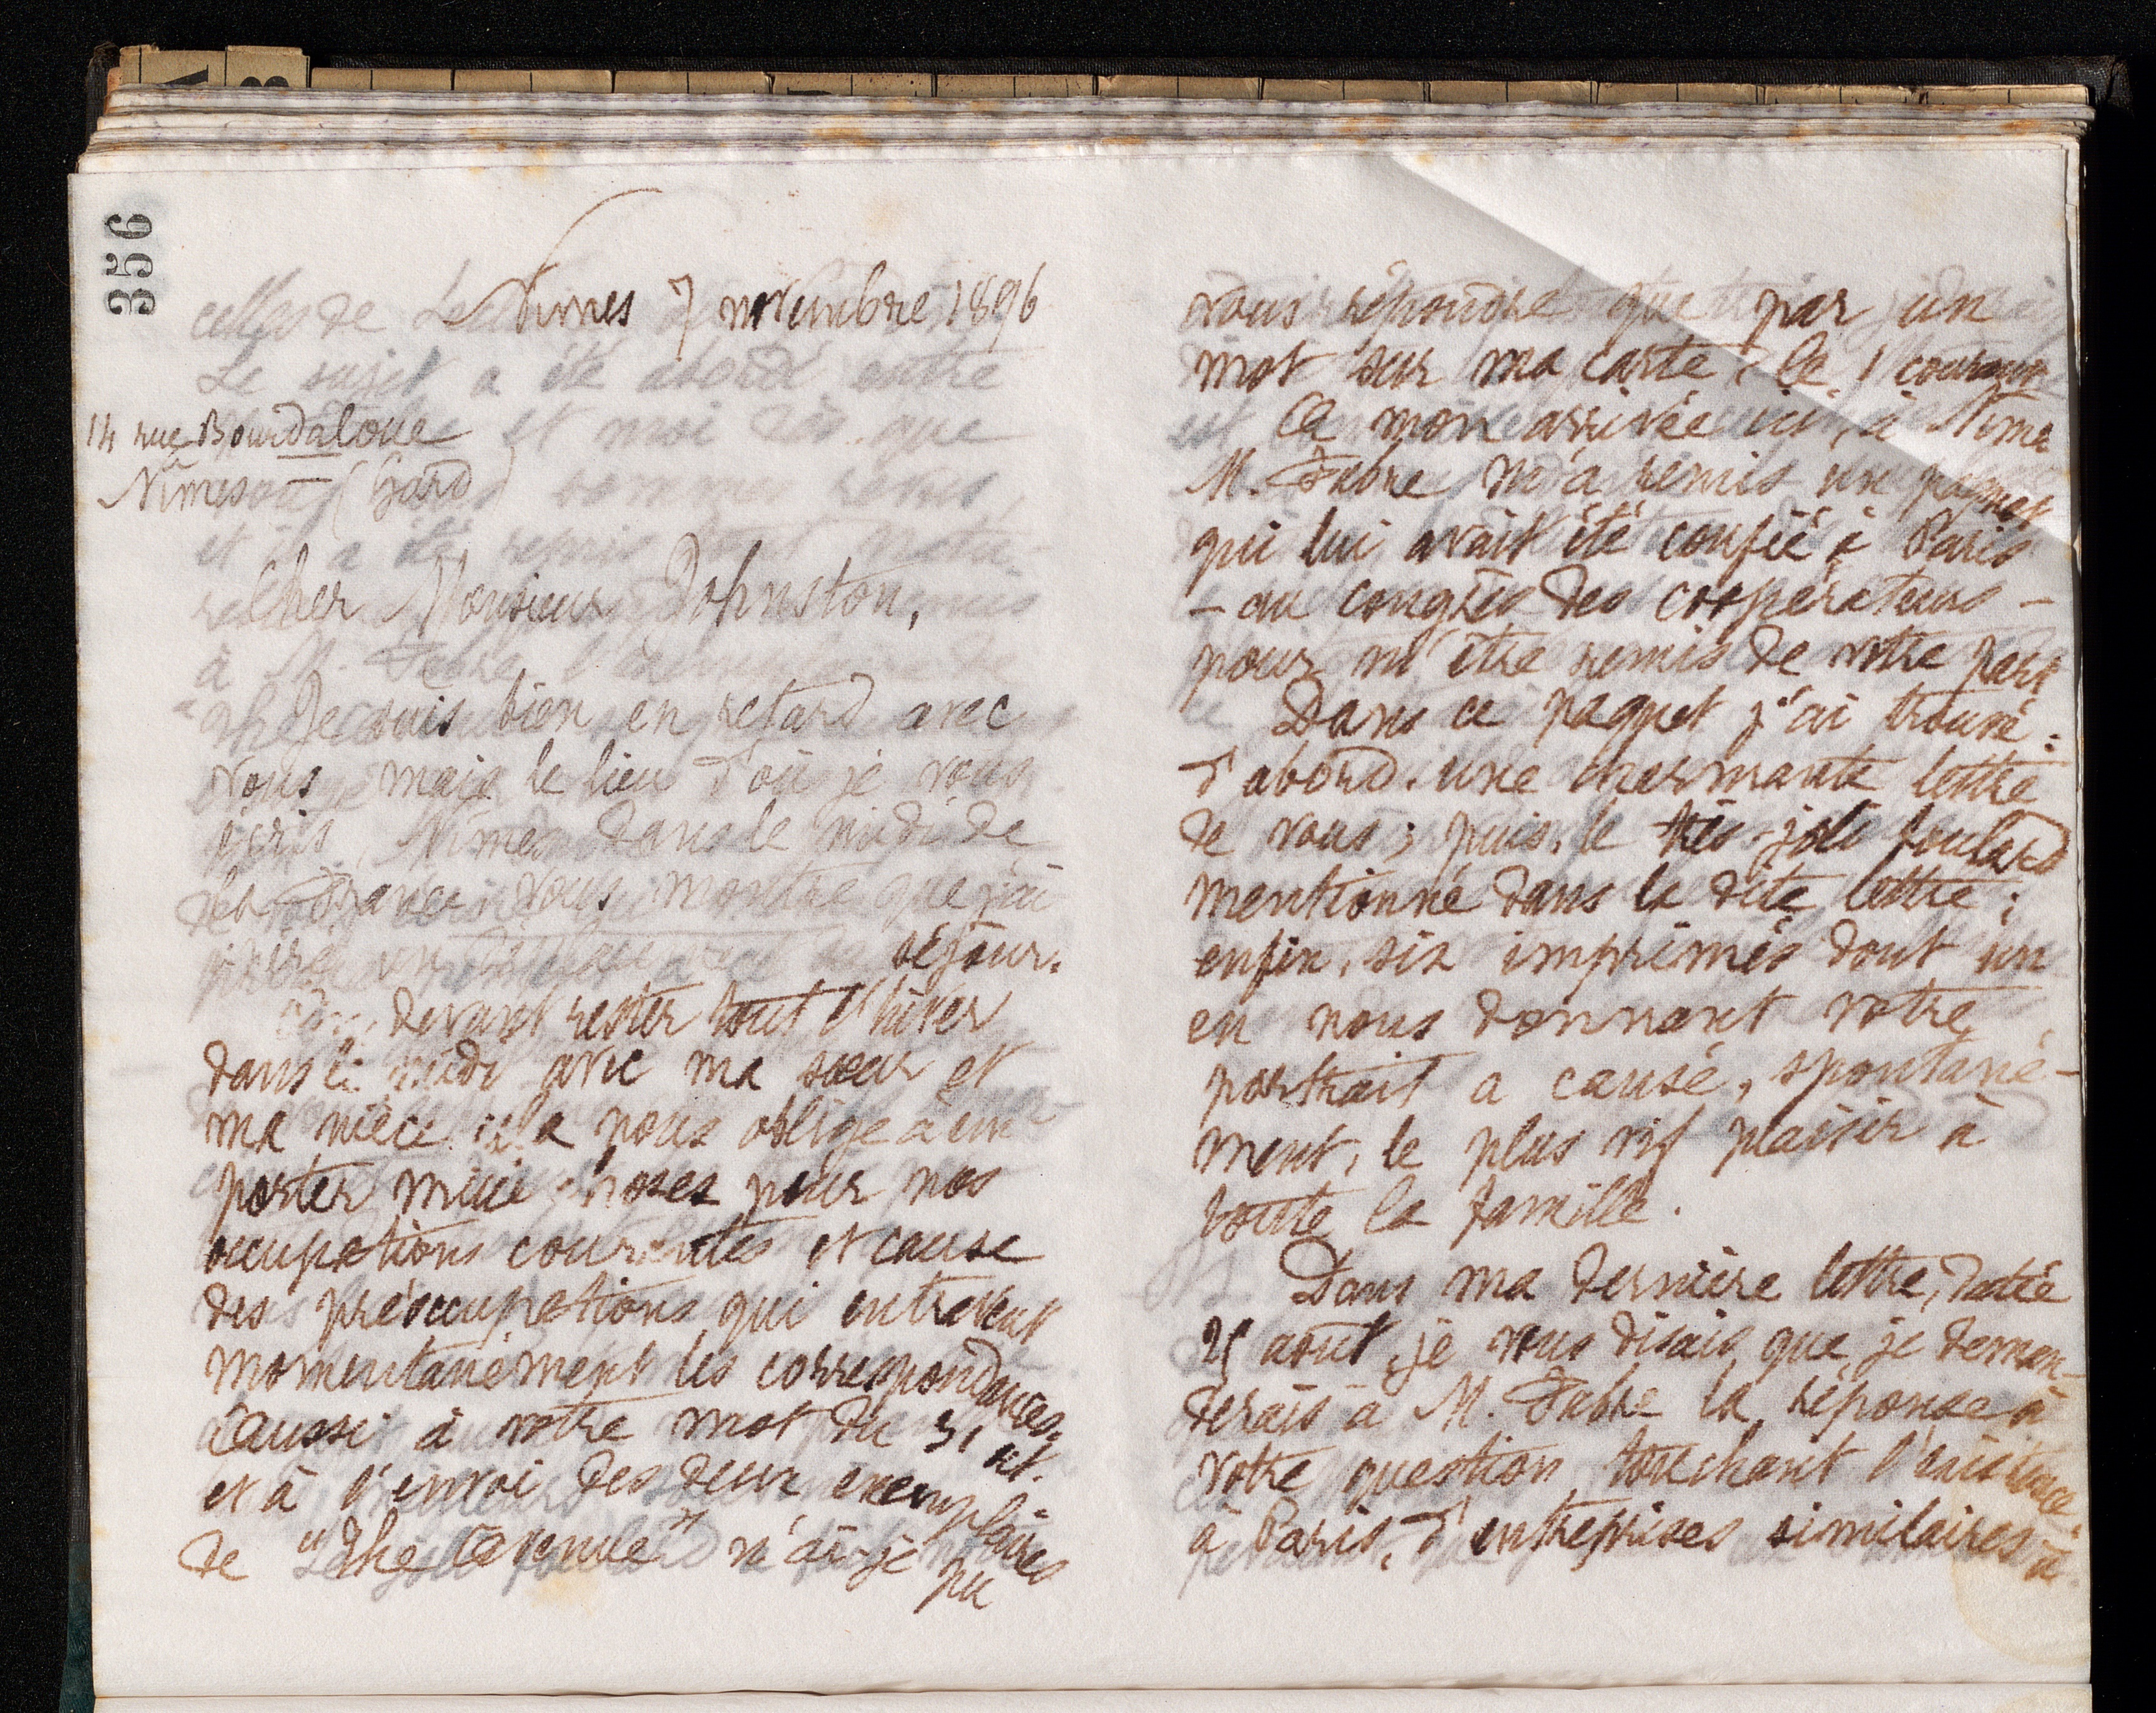 356
Nimes 7 novembre 1896
14 rue Bourdaloue
Nîmes (Gard)
Cher Monsieur Johnston,
Je suis bien en retard avec
vous mais le lieu d'où je vous
écris, Nîmes dans le midi de
la France vous montre que j'ai
séjour.
devant rester tout l'hiver
dans le midi avec ma sœur et
ma nièce cela nous oblige à em-
porter mille choses pour nos
occupations courantes et cause
des préoccupations qui entravent
momentanément les correspondances.
aussi à votre mot du 31 
et à l'envoi des deux exemplaires
de "The " n'ai-je pu
vous répondre que par un
mot sur ma carte, le 1 courant
A mon arrivée ici, à Nîme
M. Fabre m'a remis un paquet
qui lui avait été confié à Paris
- au congrès des coopérateurs -
pour m'être remis de votre part
Dans ce paquet j'ai trouvé :
d'abord, une charmante lettre
de vous ; puis, le très-joli foulard
mentionné dans la dite lettre ;
enfin, six imprimés dont un
en nous donnant votre
portrait a causé, spontané-
ment, le plus vif plaisir à
toute la famille.
Dans ma dernière lettre, datée
août, je vous disais que je deman-
derais à M. Fabre la réponse à
votre question touchant l'existence,
à Paris, d'entreprises similaires à